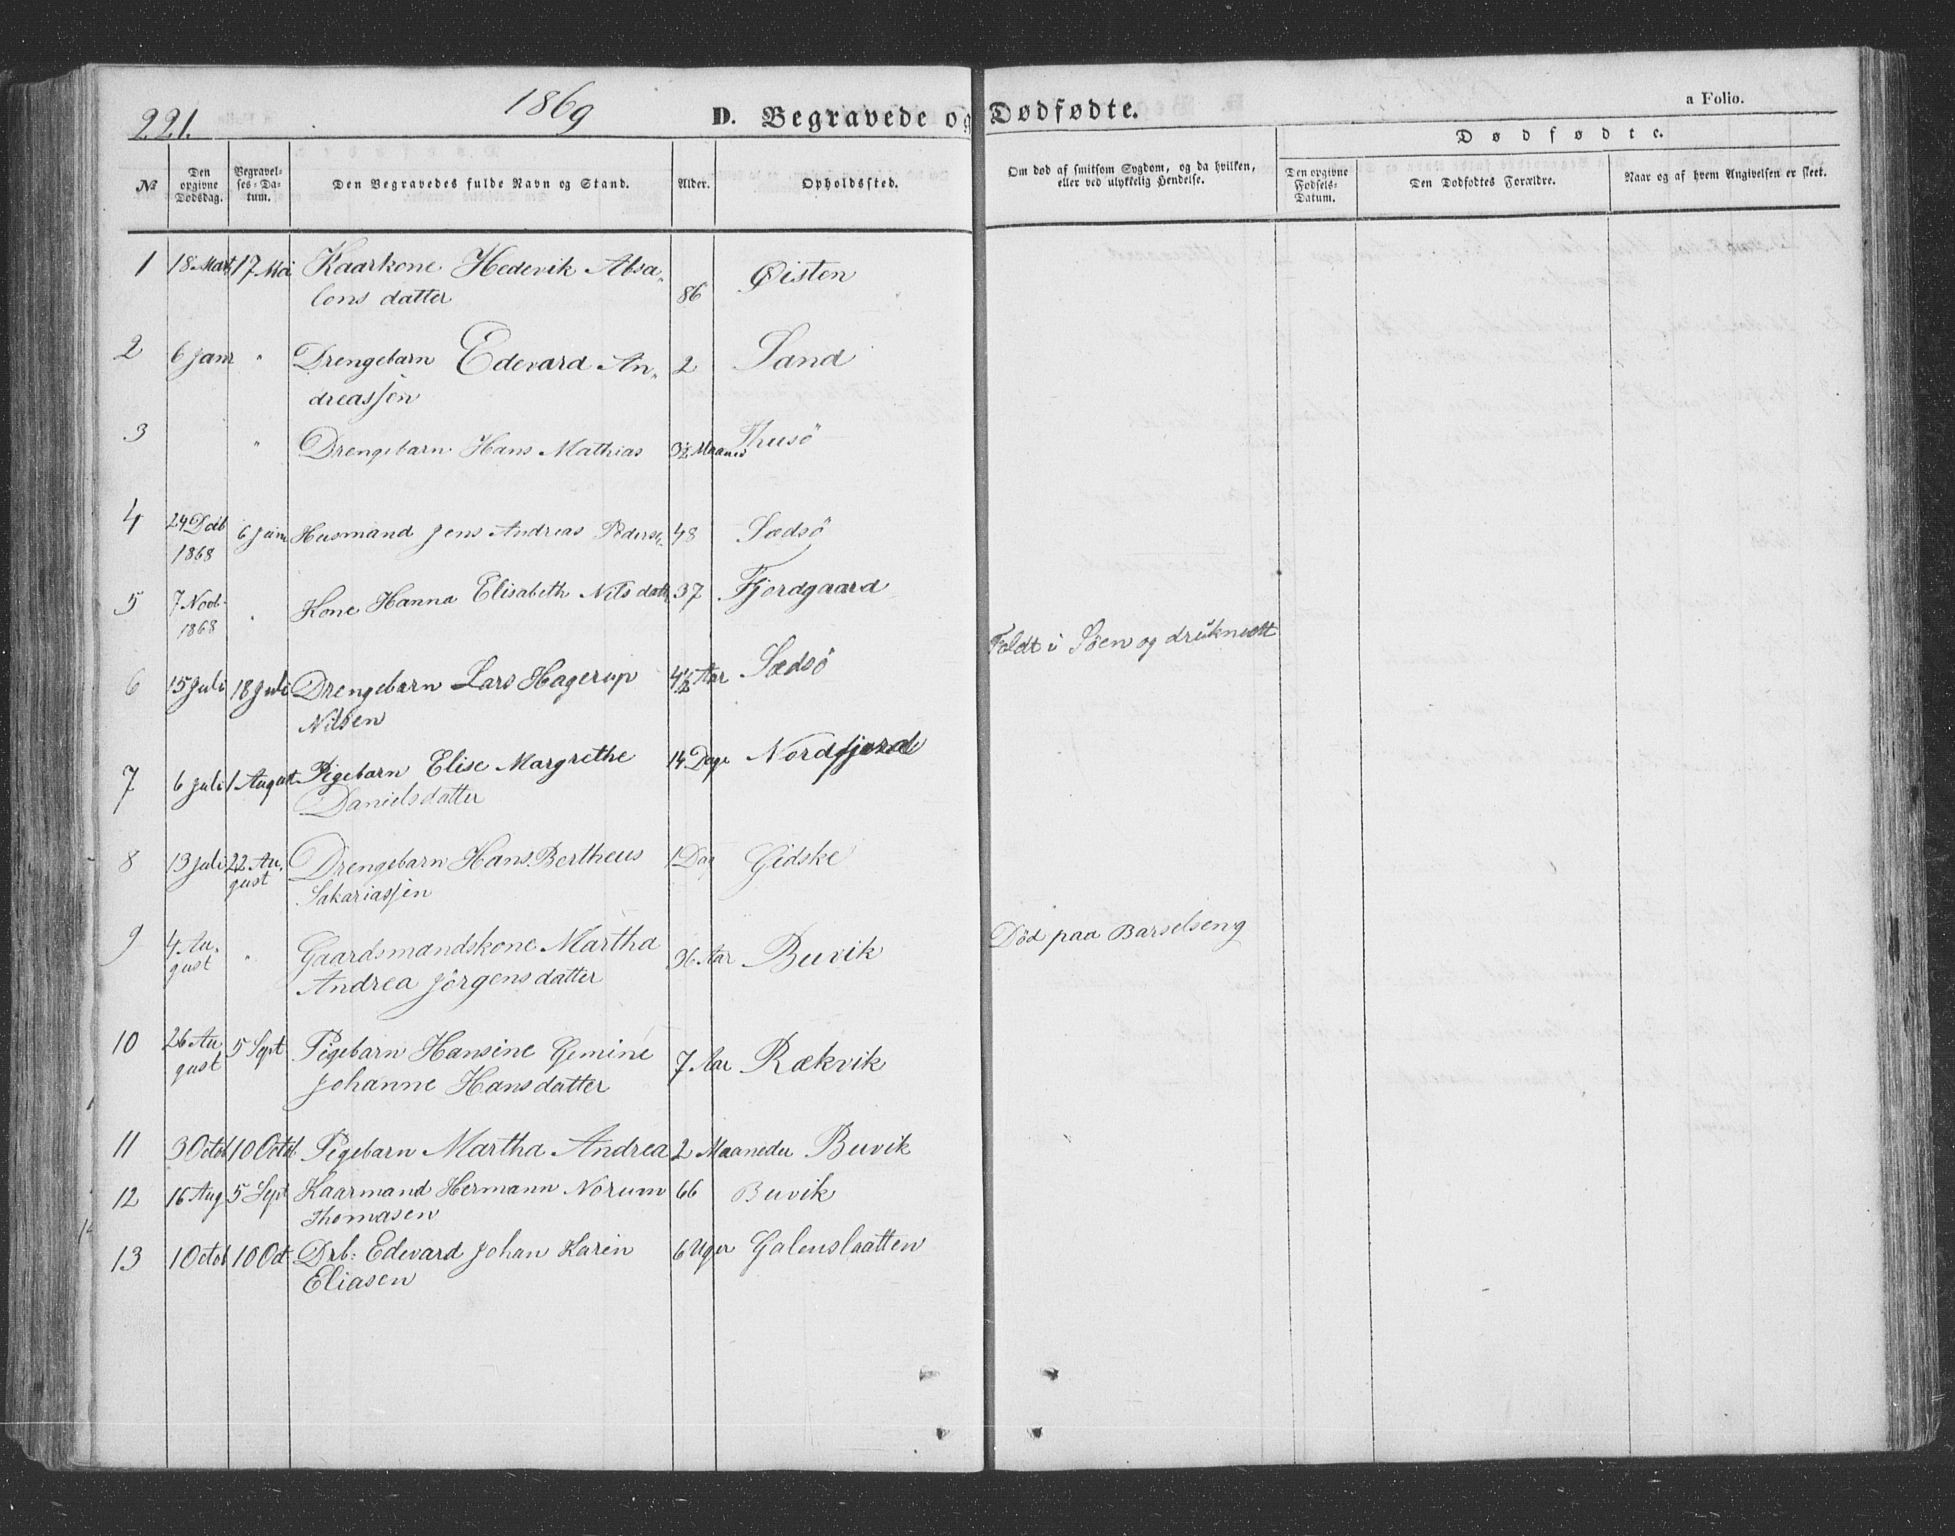 221.
1869
D. Begravede og Dødfødte.
a Folio.
Dødfødte.
No
Den opgivne Dødsdag.
Begravelses-Datum.
Den Begravedes fulde Navn og Stand.
Alder.
Opholdssted.
Om død af smitsom Sygdom, og da hvilken, eller ved ulykkelig Hendelse.
Den opgivne Fødsels-Datum.
Den Dødfødtes Forældre.
Naar og af hvem Angivelsen er skeet.
1 18 Mart 17 Mai Kaarkone Hedevik Absa„
lons datter 86 Øisten
2 6 Janr " Drengebarn Edevard An„ 2 Sand
dreassen
3 " Drengebarn Hans Mathias Maaned Thusö
4 24 Decb 6 Janr Husmand Jens Andreas Peders. 48 Sædsö
1868
5 7 Novb. " Kone Hanna Elisabeth Nils datt 37 Fjordgaard
1868
Faldt i Söen og druknett
6 15 Juli 18 Juli Drengebarn Lars Hagerup 4½ Aar Sædsö
Nilsen
7 6 Juli 1 August Pigebarn Elise Margrethe 14 Dage Nordfjord
Danielsdatter
8 13 Juli 22 Au„ Drengebarn Hans Bertheus 1 Dag Gidske
gust Sakariassen
9 4 Au„ " Gaardsmandskone Martha 36 Aar Buvik Död paa Barselseng
gust Andrea Jörgensdatter
10 26 Au 5 Sept Pigebarn Hansine Gemine 7 Aar Rækvik
gust Johanne Hansdatter
11 3 Octob 10 Octob Pigebarn Martha Andrea 2 Maaneder Buvik
12 16 Aug 5 Sept Kaarmand Hermann Norum 66 Buvik
Thomasen
13 1 Octob 10 Oct. Drb: Edevard Johan Karin 6 Uger Galenslaatten
Eliasen